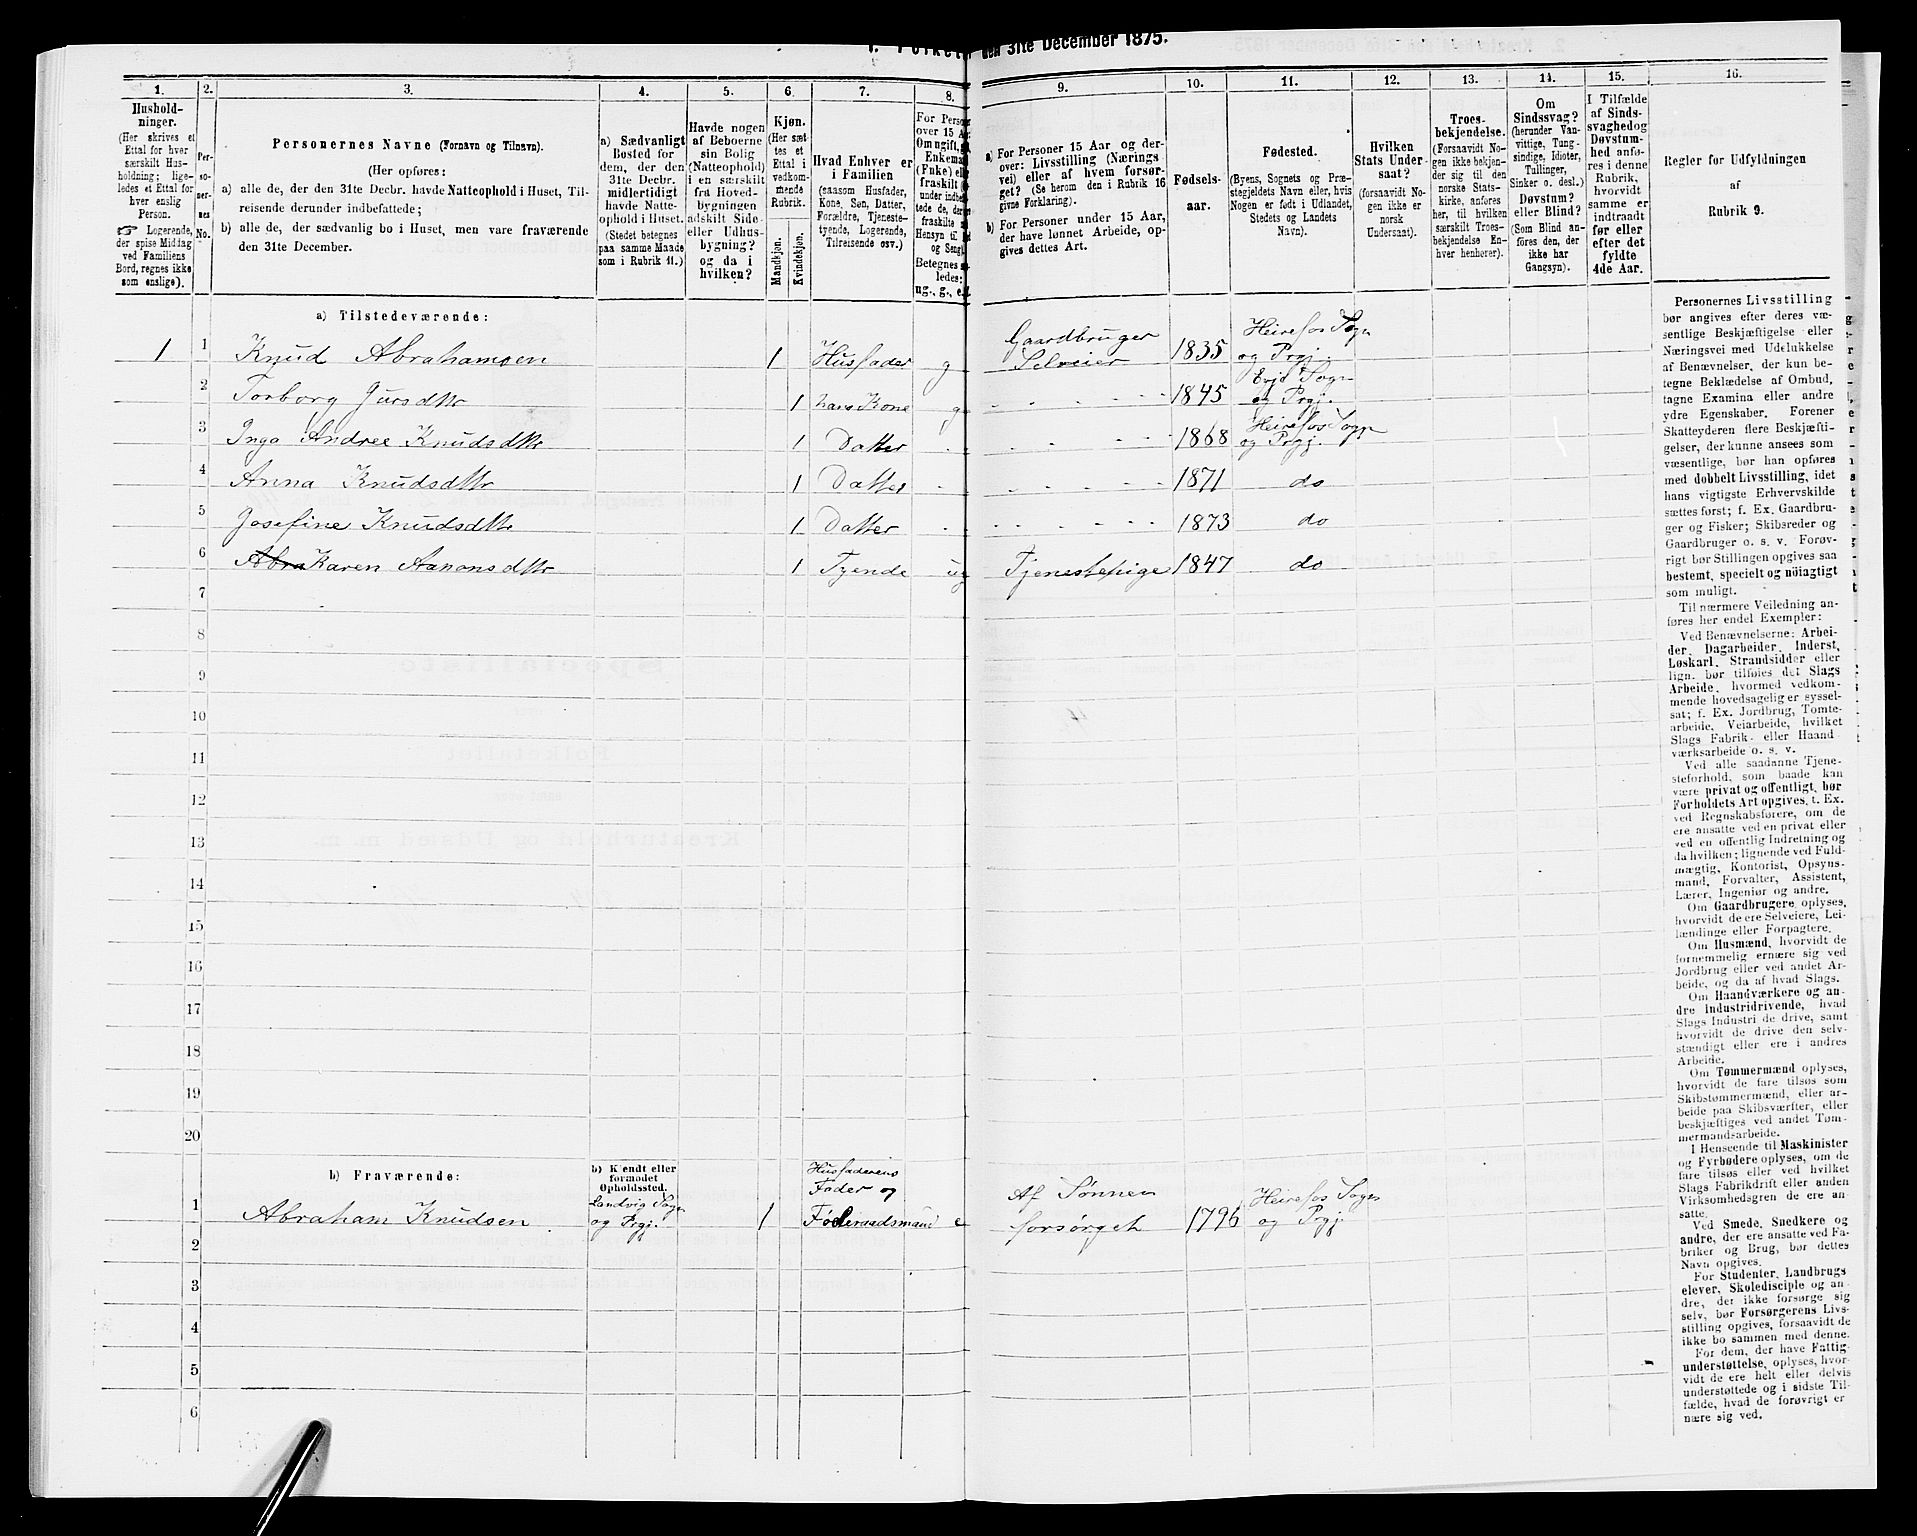 den 31te December 1875.
1.
2.
3.
4.
5.
6.
7.
8.
9.
10.
11.
12.
13.
14.
15.
16.
Hushold-
ninger.
(Her skrives et
Ettal for hver
særskilt Hus-
holdning; lige-
ledes et Ettal for
hver enslig
Person.
☞ Logerende,
der spise Middag
ved Familiens
Bord, regnes ikke
som enslige).
Per-
so-
ner-
nes
No.
Personernes Navne (Fornavn og Tilnavn).
(Her opføres:
a) alle de, der den 31te Decbr. havde Natteophold i Huset, Til-
reisende derunder indbefattede;
b) alle de, der sædvanlig bo i Huset, men vare fraværende
den 31te December.
a) Sædvanligt
Bosted for
dem, der den
31te Decbr.
midlertidigt
havde Natte-
ophold i Huset.
(Stedet betegnes
paa samme Maade
som i Rubrik 11.)
Havde nogen
af Beboerne
sin Bolig
(Natteophold)
i en særskilt
fra Hoved-
bygningen
adskilt Side-
eller Udhus-
bygning?
og da i
hvilken?
Kjøn.
(Her sæt-
tes et
Ettal i
vedkom-
mende
Rubrik.
Mandkjøn.
Kvindekjøn.
Hvad Enhver er
i Familien
(saasom Husfader,
Kone, Søn, Datter,
Forældre, Tjeneste-
tyende, Logerende,
Tilreisende osv.).
For Person
over 15 Aar
Om ugift, g
Enkema
(Fuke) el
fraskilt
under indbe
tede de, der
fraskilte
Hensyn til
og Seng
Betegnes s
ledes:
ug., g., e.
a) For Personer 15 Aar og der-
over: Livsstilling (Nærings
vei) eller af hvem forsør-
get? (Se herom den i Rubrik 16
givne Forklaring).
b) For Personer under 15 Aar,
der have lønnet Arbeide, op-
gives dettes Art.
Fødsels-
aar.
Fødested.
(Byens, Sognets og Præ-
stegjeldets Navn eller, hvis
Nogen er født i Udlandet,
Stedets og Landets
Navn).
Hvilken
Stats Under-
saat?
(forsaavidt No-
gen ikke er
norsk
Undersaat).
Troes-
bekjendelse.
(Forsaavidt No-
gen ikke bekjen-
der sig til den
norske Stats-
kirke, anføres
her, til hvilken
særskilt Troes-
bekjendelse En-
hver henhører).
Om
Sindssvag?
(herunder Van-
vittige, Tung-
sindige, Idioter,
Tullinger,
Sinker o. desl.)
Døvstum?
eller Blind?
(Som Blind an-
føres den, der
ikke har
Gangsyn).
I Tilfælde
af Sinds-
svaghed og
Døvstum-
hed anfø-
res i denne
Rubrik,
hvorvidt
samme er
indtraadt
før eller
efter det
fyldte
4de Aar.
Regler for Udfyldningen
af
Rubrik 9.
a) Tilstedeværende:
1 1 Knud Abrahamsen 1 Husfader g Gaardbruger Selveier 1835 Heirefos Sogn og Prgj.
2 Torborg Jursdttr 1 hans Kone g 1845 Evje Sogn og Prgj.
3 Inga Andree Knudsdttr 1 Datter 1868 Heirefos Sogn og Prgj.
4 Anna Knudsdttr 1 Datter 1871 do
5 Josefine Knudsdttr 1 Datter 1873 do
6 Abra Karen Aanonsdttr 1 Tyende ug Tjenestepige 1847 do
7
8
9
10
11
12
13
14
15
16
17
18
19
20
b) Fraværende:
b) Kjendt eller
formodet
Opholdssted.
1 Abraham Knudsen Landvig Sogn og Prgj. 1 Husfaderens Fader og Føderaadsmand e Af Sønnen forsørget 1796 Heirefos Sogn og Prgj
2
3
4
5
6
Personernes Livsstilling
bør angives efter deres væ-
sentlige Beskjæftigelse eller
Næringsvei med Udelukkelse
af Benævnelser, der kun be-
tegne Beklædelse af Ombud,
tagne Examina eller andre
ydre Egenskaber. Forener
Skatteyderen flere Beskjæfti-
gelser, der kunne ansees som
væsentlige, bør han opføres
med dobbelt Livsstilling, idet
hans vigtigste Erhvervskilde
sættes først; f. Ex. Gaardbru-
ger og Fisker; Skibsreder og
Gaardbruger o. s. v. Forøv-
rigt bør Stillingen opgives saa
bestemt, specielt og nøiagtigt
som muligt.
Til nærmere Veiledning an-
føres her endel Exempler:
Ved Benævnelserne: Arbei-
der, Dagarbeider, Inderst,
Løskarl, Strandsidder eller
lign. bør tilføies det Slags
Arbeide, hvormed vedkom-
mende hovedsagelig er syssel-
sat; f. Ex. Jordbrug, Tomte-
arbeide, Veiarbeide, hvilket
Slags Fabrik- eller Haand
værksarbeide o. s. v.
Ved alle saadanne Tjene-
steforhold, som baade kan
være privat og offentligt, bør
Forholdets Art opgives, t. Ex.
ved Regnskabsførere, om de
ere ansatte ved en privat eller
ved en offentlig Indretning og
da hvilken; lignende ved Fuld-
mægtig, Kontorist, Opsyns-
mand, Forvalter, Assistent,
Lærer, Ingeniør og andre.
Om Gaardbrugere oplyses,
hvorvidt de ere Selveiere, Lei-
lændinge eller Forpagtere.
Om Husmænd, hvorvidt de
fornemmelig ernære sig ved
Jordbrug eller ved andet Ar-
beide, og da af hvad Slags.
Om Haandværkere og an-
dre Industridrivende, hvad
Slags Industri de drive, samt
hvorvidt de drive den selv-
stændigt eller ere i andres
Arbeide.
Om Tømmermænd oplyses,
hvorvidt de fare tilsøs som
Skibstømmermænd, eller ar-
beide paa Skibsværfter, eller
beskjæftiges ved andet Tøm-
mermandsarbeide.
I Henseende til Maskinister
og Fyrbødere oplyses, om de
fare tilsøs eller ved hvilket
Slags Fabrikdrift eller anden
Virksomhedsgren de ere an-
satte.
Ved Smede, Snedkere og
andre, der ere ansatte ved Fa-
briker og Brug, bør dettes
Navn opgives.
For Studenter, Landbrugs
elever, Skoledisciple og an-
dre, der ikke forsørge sig
selv, bør Forsørgerens Livs-
stilling opgives, forsaavidt de
ikke bo sammen med denne.
For dem, der have Fattig-
understøttelse, oplyses, hvor-
vidt de ere helt eller delvis
understøttede og i sidste Til-
fælde, hvad de forøvrigt er
nære sig ved.